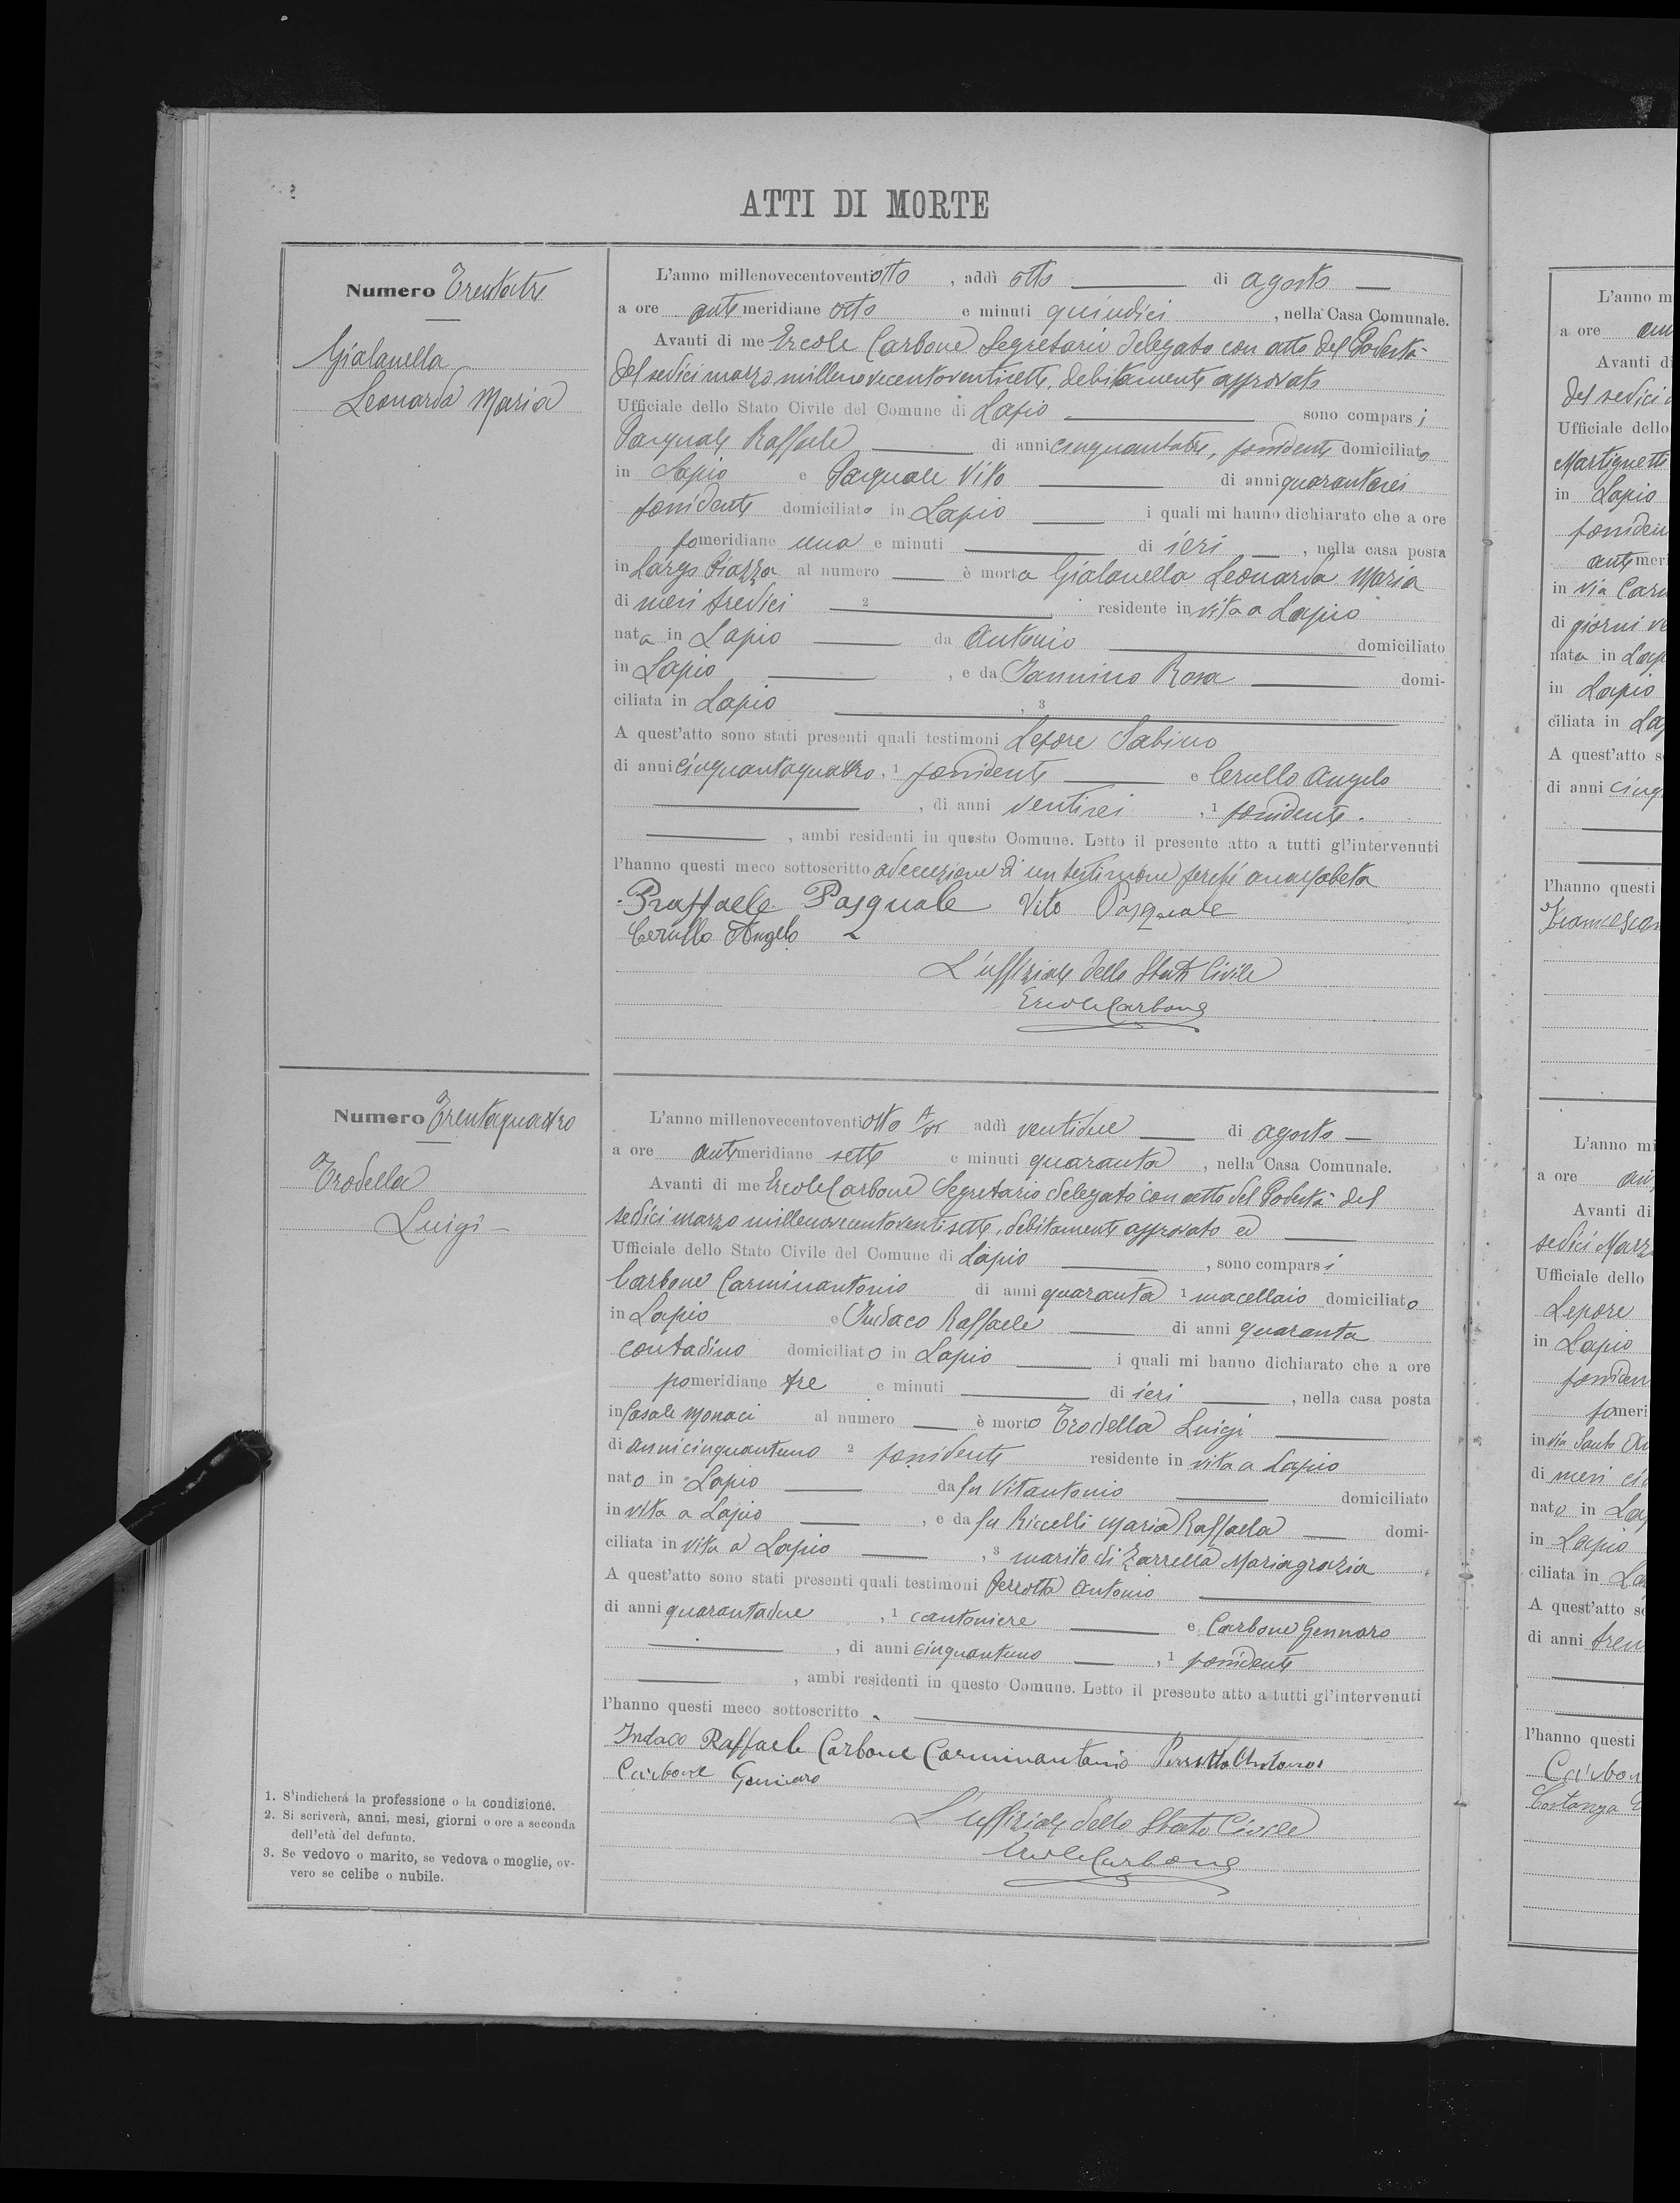 ATTI DI MORTE
Numero Trentatre
Gialanella
Leonarda Maria
L'anno millenovecentoventiotto, addì otto di agosto
a ore antemeridiane otto e minuti quindici, nella Casa Comunale.
Avanti di me Ercole Carbone Segretario delegato con atto del Podestà
del sedici marzo millenovecentoventisette, debitamente approvato
Ufficiale dello Stato Civile del Comune di Lapio sono comparsi
Pasquale Raffaele di anni cinquantatre, possidente domiciliato
in Lapio e Pasquale Vito di anni quarantasei
possidente domiciliato in Lapio i quali mi hanno dichiarato che a ore
pomeridiane una e minuti di ieri, nella casa posta
in Largo Piazza al numero è morta Gialanella Leonarda Maria
di mesi tredici 2 residente in vita a Lapio
nata in Lapio da Antonio domiciliato
in Lapio, e da Iannino Rosa domi-
ciliata in Lapio, 3
A quest'atto sono stati presenti quali testimoni Lepore Sabino
di anni cinquantaquattro, 1 possidente e Cerullo Angelo
, di anni ventisei, 1 possidente.
, ambi residenti in questo Comune. Letto il presente atto a tutti gl'intervenuti
l'hanno questi meco sottoscritto ad eccezione di un testimone perché analfabeta
Raffaele Pasquale Vito Pasquale
Cerullo Angelo
L'uffiziale dello Stato Civile
Ercole Carbone
Numero Trentaquattro
Trodella
Luigi
L'anno millenovecentoventiotto addì ventidue di agosto
a ore antemeridiane sette e minuti quaranta, nella Casa Comunale.
Avanti di me Ercole Carbone Segretario delegato con atto del Podestà del
sedici marzo millenovecentoventisette, debitamente approvato ed
Ufficiale dello Stato Civile del Comune di Lapio, sono comparsi
Carbone Carminantonio di anni quaranta 1 macellaio domiciliato
in Lapio e Indaco Raffaele di anni quaranta
contadino domiciliato in Lapio i quali mi hanno dichiarato che a ore
pomeridiane tre e minuti di ieri, nella casa posta
in Casale Monaci al numero è morto Trodella Luigi
di anni cinquantuno 2 possidente residente in vita a Lapio
nato in Lapio da fu Vitantonio domiciliato
in vita a Lapio, e da fu Riccelli Maria Raffaela domi-
ciliata in vita a Lapio, 3 marito di Zarrella Mariagrazia.
A quest'atto sono stati presenti quali testimoni Perrotta Antonio
di anni quarantadue, 1 cantoniere e Carbone Gennaro
, di anni cinquantuno, 1 possidente
, ambi residenti in questo Comune. Letto il presente atto a tutti gl'intervenuti
l'hanno questi meco sottoscritto.
Indaco Raffaele Carbone Carminantonio Perrotta Antonio
Carbone Gennaro
L'uffiziale dello Stato Civile
Ercole Carbone
1. S'indicherá la professione o la condizione.
2. Si scriverà, anni, mesi, giorni o ore a seconda
dell'età del defunto.
3. Se vedovo o marito, se vedova o moglie, ov-
vero se celibe o nubile.
L'anno m
a ore
Avanti d
del sedici
Ufficiale dello
Martignetti
in Lapio
antemeri
in Via
di giorni
nata in Lap
in Lapio
ciliata in
A quest'atto s
di anni cinq
l'hanno questi
L'anno mi
a ore
Avanti di
sedici Marz
Ufficiale dello
Lepore
in Lapio
pomeri
in via
di mesi
nato in
in Lapio
ciliata in
A quest'atto s
di anni tren
l'hanno questi
Carbon
Costanza